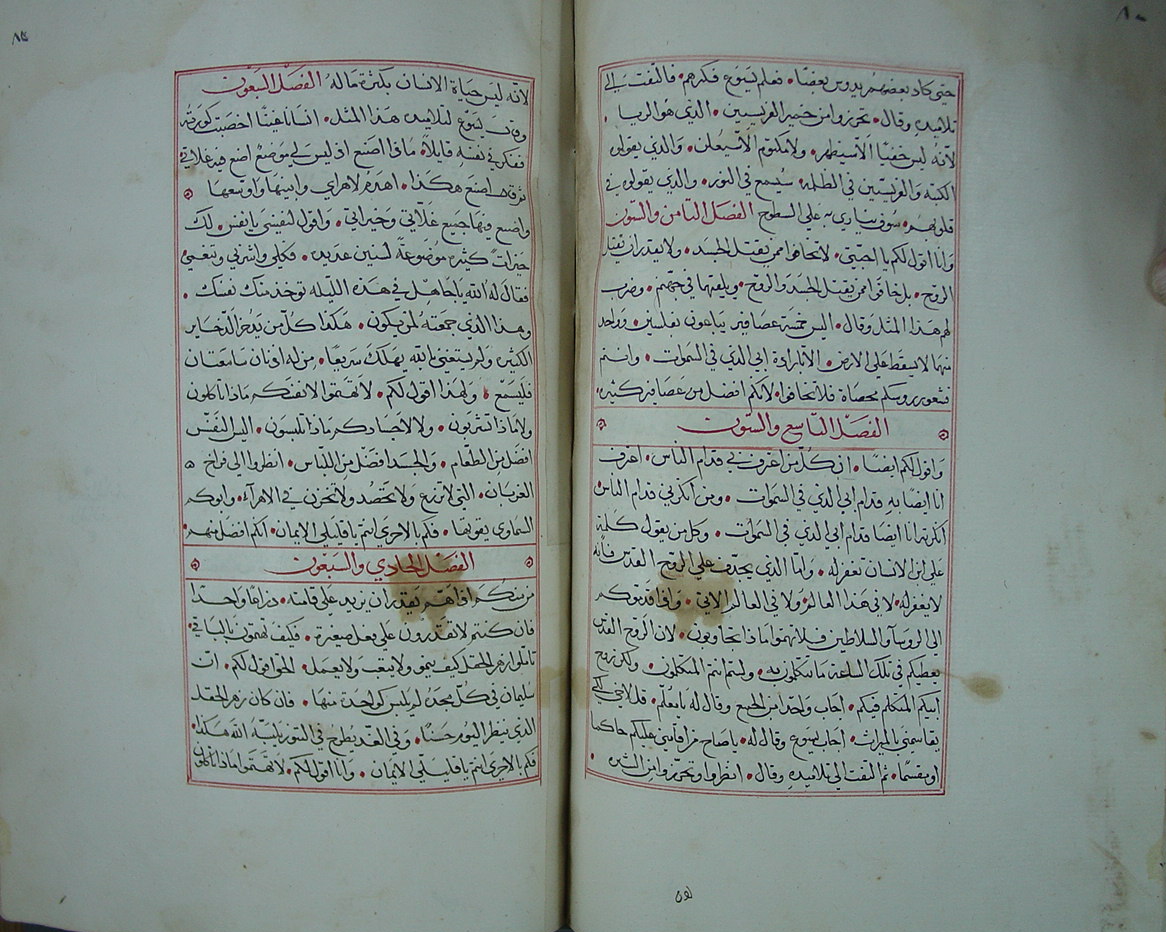 حتى كاد بعضهم يدوس بعضا، فعلم يسوع فكرهم، فالتفت الى
تلاميذه وقال، تحرزوا من خمير الفريسيين، الذي هو الريا
لانه ليس خفيا الا سيظهر، ولا مكتوم الا سيعلن، والذي يقولوه
الكتبه والفريسيين في الظلمه، سيسمع في النور، والذي يقولوه في
قلوبهم، سوف ينادي به على السطوح الفصل الثامن والستون
وانا اقول لكم يا احبتي، لا تخافوا ممن يقتل الجسد، ولا يقدر ان يقتل
الروح، بل خافوا ممن يقتل الجسد والروح، ويلقيها في جهنم، وضرب
لهم هذا المثل وقال، اليس خمسة عصافير يباعون بفلسين، وواحد
منها لا يسقط على الارض، الا بارادة ابي الذي في السموات، وانتم
فشعور روسكم محصاة فلا تخافوا، لانكم افضل من عصافير كثيره،
الفصل التاسع والستون
واقول لكم ايضا، ان كل من اعترف بي قدام الناس، اعترف
انا ايضا به قدام ابي الذي في السموات، ومن انكرني قدام الناس
انكرته انا ايضا قدام ابي الذي في السموات، وكل من يقول كلمة
على ابن الانسان تغفر له، واما الذي يجدف على الروح القدس فانه
لا يغفر له، لا في هذا العالم، ولا في العالم الاتي، واذا قدموكم
الى الروسا والسلاطين، فلا تهتموا ماذا تجاوبون، لان الروح القدس
يعطيكم في تلك الساعة ما تتكلمون به، ولستم انتم المتكلمون، ولكن روح
ابيكم المتكلم فيكم، اجاب واحد من الجمع وقال له يا معلم، قل لاخي لكي
يقاسمني الميراث، اجاب يسوع وقال له، يا صاح من اقامني عليكم حاكما
او مقسما، ثم التفت الى تلاميذه وقال، انظروا وتحرزوا من الشره،
لانه ليس حياة الانسان بكثرة ماله الفصل السبعون
وقال يسوع لتلاميذه هذا المثل، انسانا غنيا اخصبت كورته
ففكر في نفسه قايلا، ماذا اصنع اذ ليس لي موضع اضع فيه غلاتي
ثم قال اصنع هكذا، اهدم لاهراي وابنيها واوسعها
واضع فيها جميع غلاتي وخيراتي، واقول لنفسي يا نفس، لك
خيرات كثيره موضوعة لسنين عديده، فكلي واشربي وتنعمي
فقال له الله يا جاهل، في هذه الليله توخذ منك نفسك،
وهذا الذي جمعته لمن يكون، هكذا كل من يدخر الذخاير
الكثيره ولم يستغني بالله يهلك سريعا، من له اذنان سامعتان
فليسمع، ولهذا اقول لكم، لا تهتموا لانفسكم ماذا تاكلون
ولا ماذا تشربون، ولا لاجسادكم ماذا تلبسون، اليس النفس
افضل من الطعام، والجسد افضل من اللباس، انظروا الى فراخ
الغربان، التي لا تزرع ولا تحصد ولا تخزن في الاهرآء، وابوكم
السماوي يقوتها، فكم بالاحري انتم يا قليلي الايمان، انكم افضل منهم
الفصل الحادي والسبعون
من منكم اذا اهتم يقدر ان يزيد على قامته، ذراعا واحدا
فان كنتم لا تقدرون على فعل صغيرة، فكيف تهتمون بالباقي،
تاملوا زهر الحقل كيف ينمو ولا يتعب ولا يعمل، الحق اقول لكم، ان
سليمان في كل مجده لم يلبس كواحدة منها، فان كان زهر الحقل
الذي ينظر اليوم حسنا، وفي الغد يطرح في التنور يلبسه الله هكذا،
فكم بالاحري انتم يا قليلي الايمان، وانا اقول لكم، لا تهتموا ماذا تاكلون